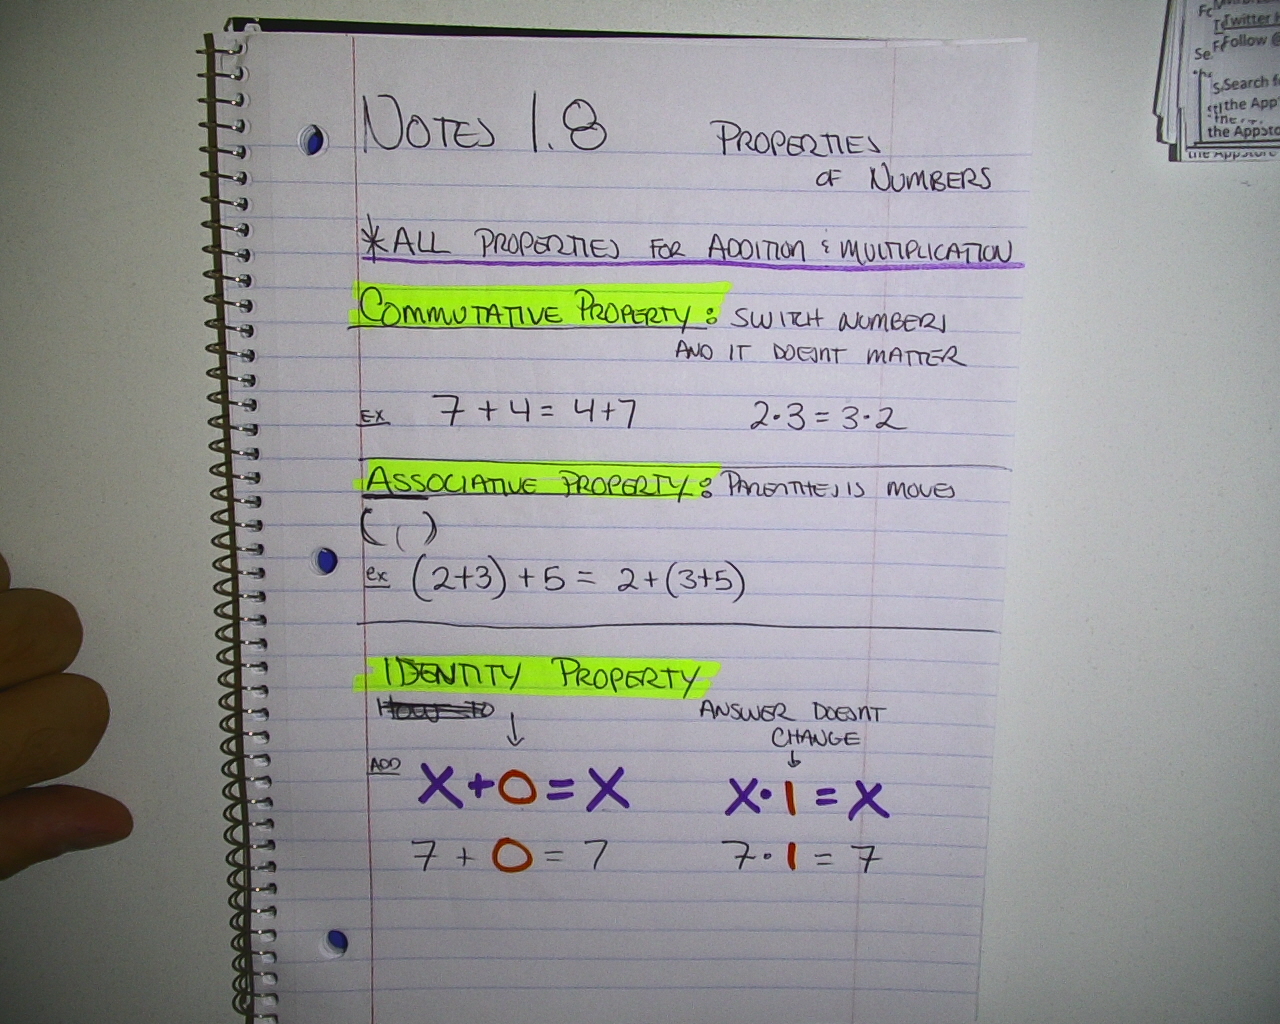 NOTES 1.8
PROPERTIES
OF NUMBERS
*ALL PROPERTIES FOR ADDITION & MULTIPLICATION
COMMUTATIVE PROPERTY: SWITCH NUMBERS
AND IT DOESNT MATTER
EX 7+4=4+7 2·3=3·2
ASSOCIATIVE PROPERTY: PARENTHESIS MOVES
( ( )
ex (2+3)+5= 2+(3+5)
IDENTITY PROPERTY
ANSWER DOESNT
CHANGE
ADD X+0=X X·1=X
7+0=7 7·1=7
Twitter
Follow @
Search f
the App
the Appsto
the Appstore